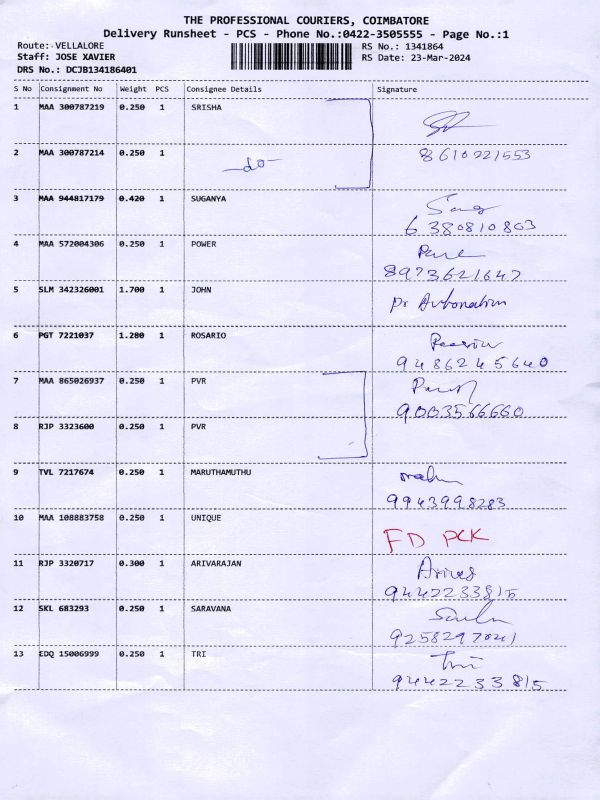 THE PROFESSIONAL COURIERS, COIMBATORE
Delivery Runsheet - PCS - Phone No.:0422-3505555 - Page No.:1
Route: VELLALORE RS No.: 1341864
Staff: JOSE XAVIER RS Date: 23-Mar-2024
DRS No.: DCJB134186401
S No Consignment No Weight PCS Consignee Details Signature
1 MAA 300787219 0.250 1 SRISHA
2 MAA 300787214 0.250 1 -do- 8610221553
3 MAA 944817179 0.420 1 SUGANYA
6380810803
4 MAA 572004306 0.250 1 POWER
8973621647
5 SLM 342326001 1.700 1 JOHN Pr Automation
6 PGT 7221037 1.280 1 ROSARIO
9486245640
7 MAA 865026937 0.250 1 PVR
9003566660
8 RJP 3323600 0.250 1 PVR
9 TVL 7217674 0.250 1 MARUTHAMUTHU
9943998283
10 MAA 108883758 0.250 1 UNIQUE FD PCK
11 RJP 3320717 0.300 1 ARIVARAJAN
9442233815
12 SKL 683293 0.250 1 SARAVANA
9258297041
13 EDQ 15006999 0.250 1 TRI
9442233815